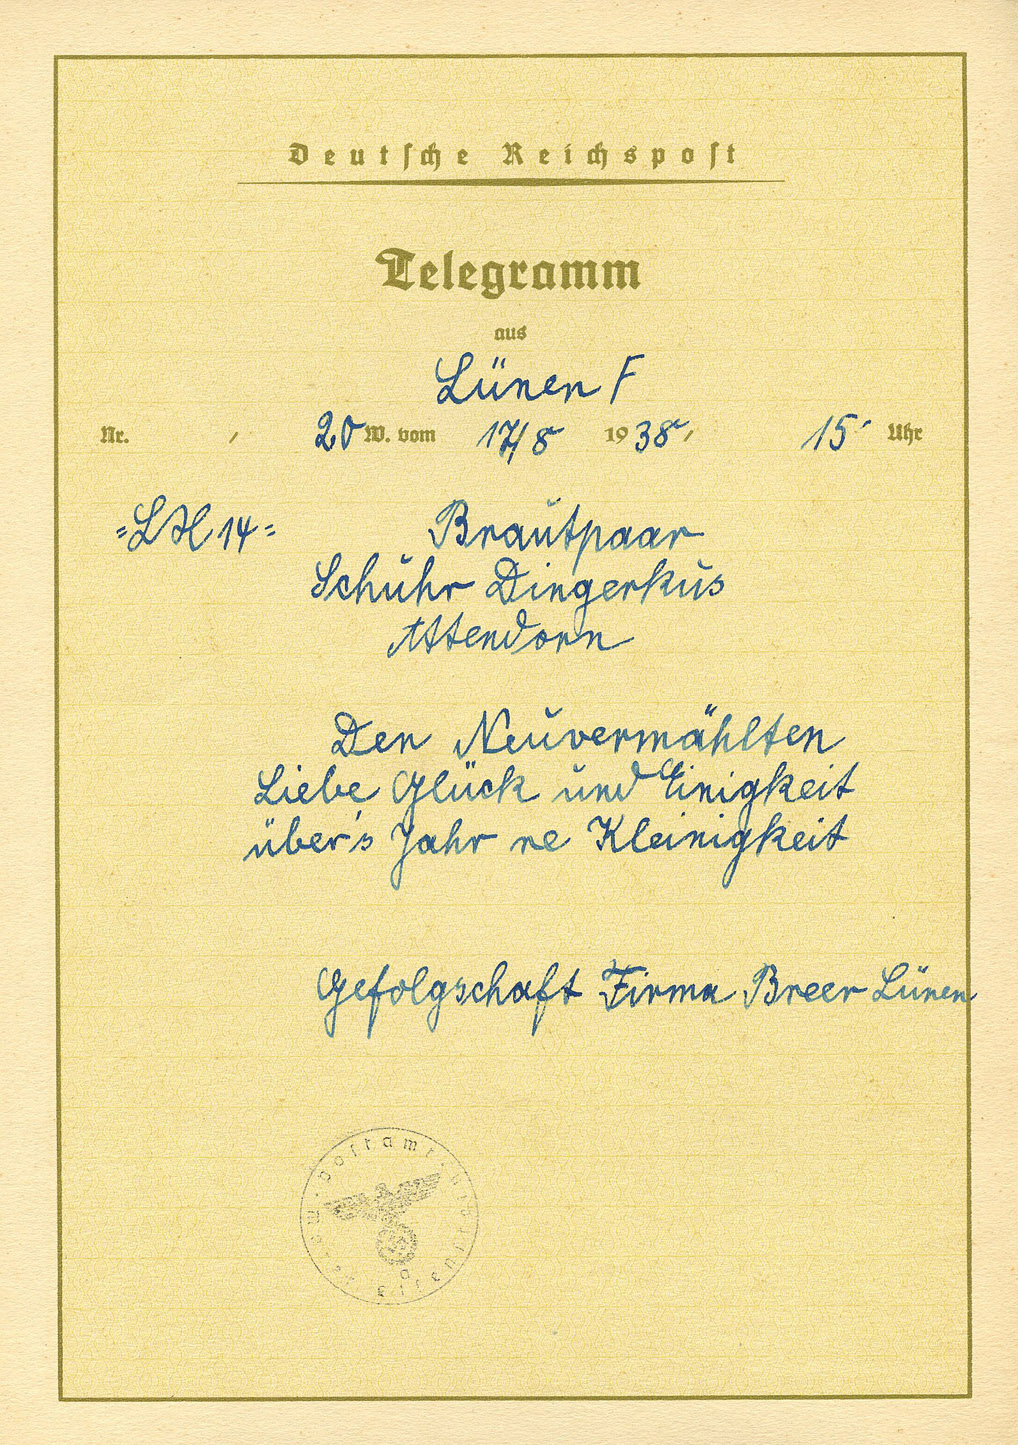 Deutsche Reichspost
Telegramm
aus
Lünen F
Nr. 20 W. vom 17/8 1938, 15 Uhr
=LX14= Brautpaar
Schuhr Dingerkus
Attendorn
Den Neuvermählten
Liebe Glück und Einigkeit
über's Jahr ne Kleinigkeit
Gefolgschaft Firma Breer Lünen
postamt